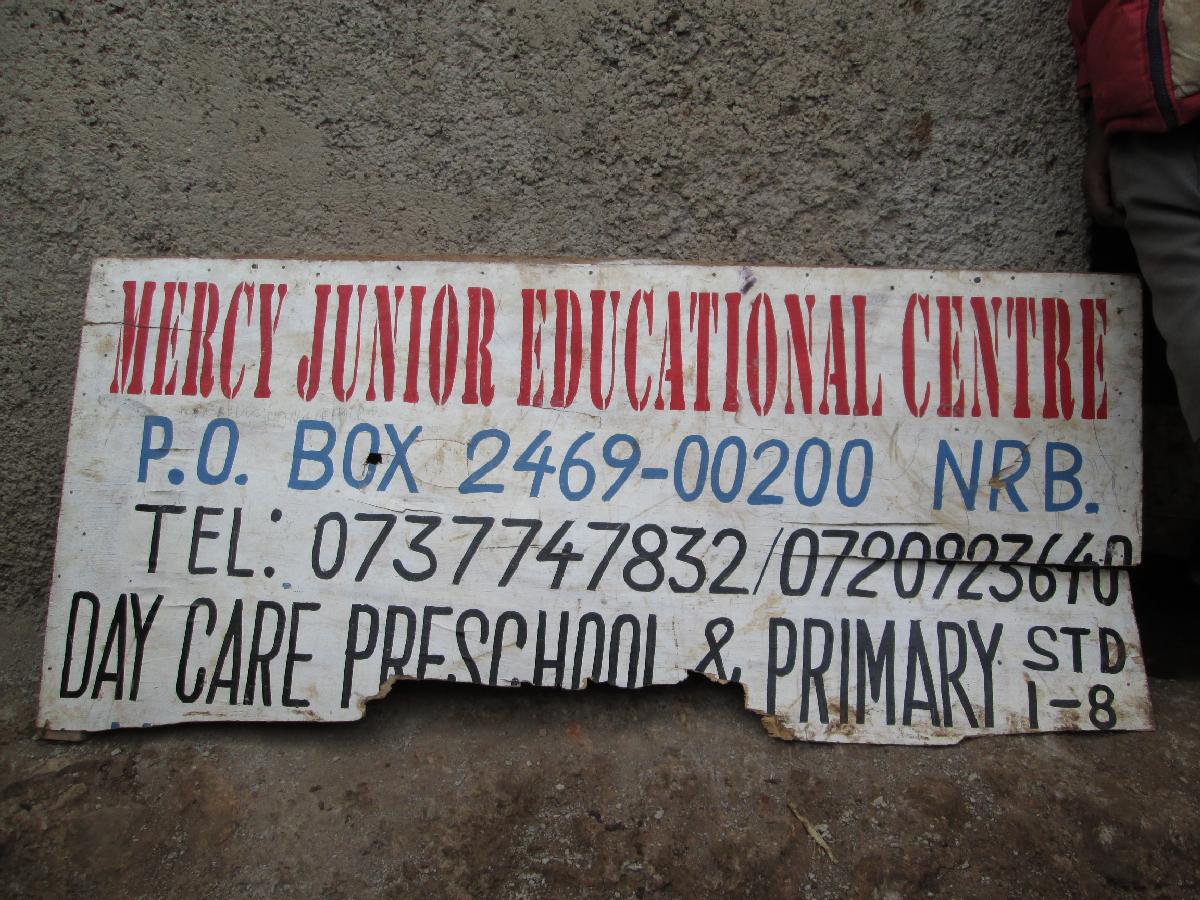 MERCY JUNIOR EDUCATIONAL CENTRE
P.O. BOX 2469-00200 NRB.
TEL: 0737747832/0720923640
DAY CARE PRESCHOOL & PRIMARY STD 1-8